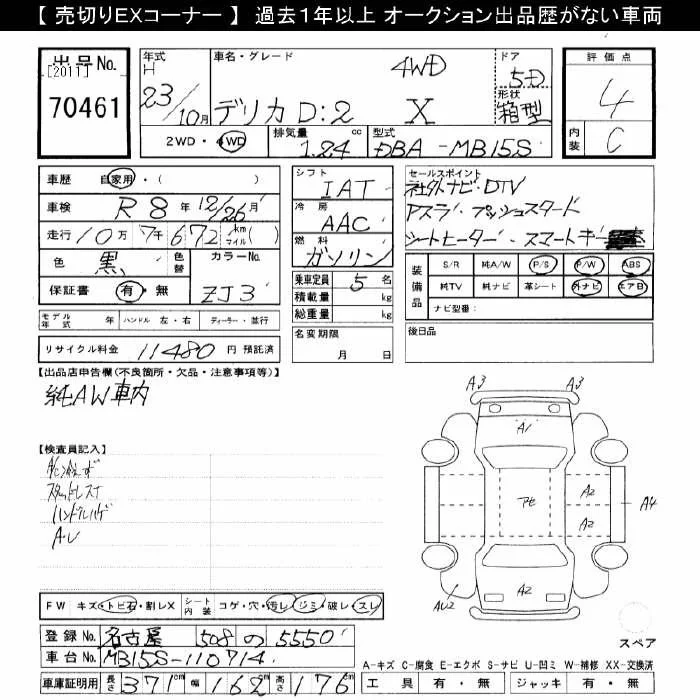 【 売切りEXコーナー 】 過去１年以上 オークション出品歴がない車両
出品No. 年式 車名・グレード ドア 評価点
[2011] H 4WD 5D
70461 23/10月 デリカ D:2 X 形状 箱型 4
2WD・4WD 排気量 cc 型式 内装 C
1.24 DBA-MB15S
車歴 自家用・( ) シフト IAT セールスポイント
車検 R 8年 12/26月 冷房 AAC 社外ナビ・DTV
走行 10万 7千 672 km マイル 燃料 ガソリン Pスラ・プッシュスタート
色 黒 色替 カラーNo. シートヒーター・スマートキー
保証書 有・無 ZJ3
乗車定員 5 名 装備品 S/R 純A/W P/S P/W ABS
積載量 kg 純TV 純ナビ 革シート 外ナビ エアB
総重量 kg ナビ型番:
モデル年式 年 ハンドル 左・右 ディーラー・並行 名変期限 月 日 後日品
リサイクル料金 11480 円 預託済
【出品店申告欄(不良箇所・欠品・注意事項等)】
純AW車内
A3 A3
A1
【検査員記入】
A/C冷えず
スタッドレスT
ハンドルハゲ
A・U
アセ A2 A2 A4
AU2 A2
FW キズ・トビ石・割レX シート内装 コゲ・穴・汚レ・ジミ・破レ・スレ
登録No. 名古屋 508 の 5550 スペア
車台No. MB15S-110714
A-キズ C-腐食 E-エクボ S-サビ U-凹ミ W-補修 XX-交換済
車庫証明用 長さ 371 cm 幅 162 cm 高さ 176 cm 工具 有・無 ジャッキ 有・無